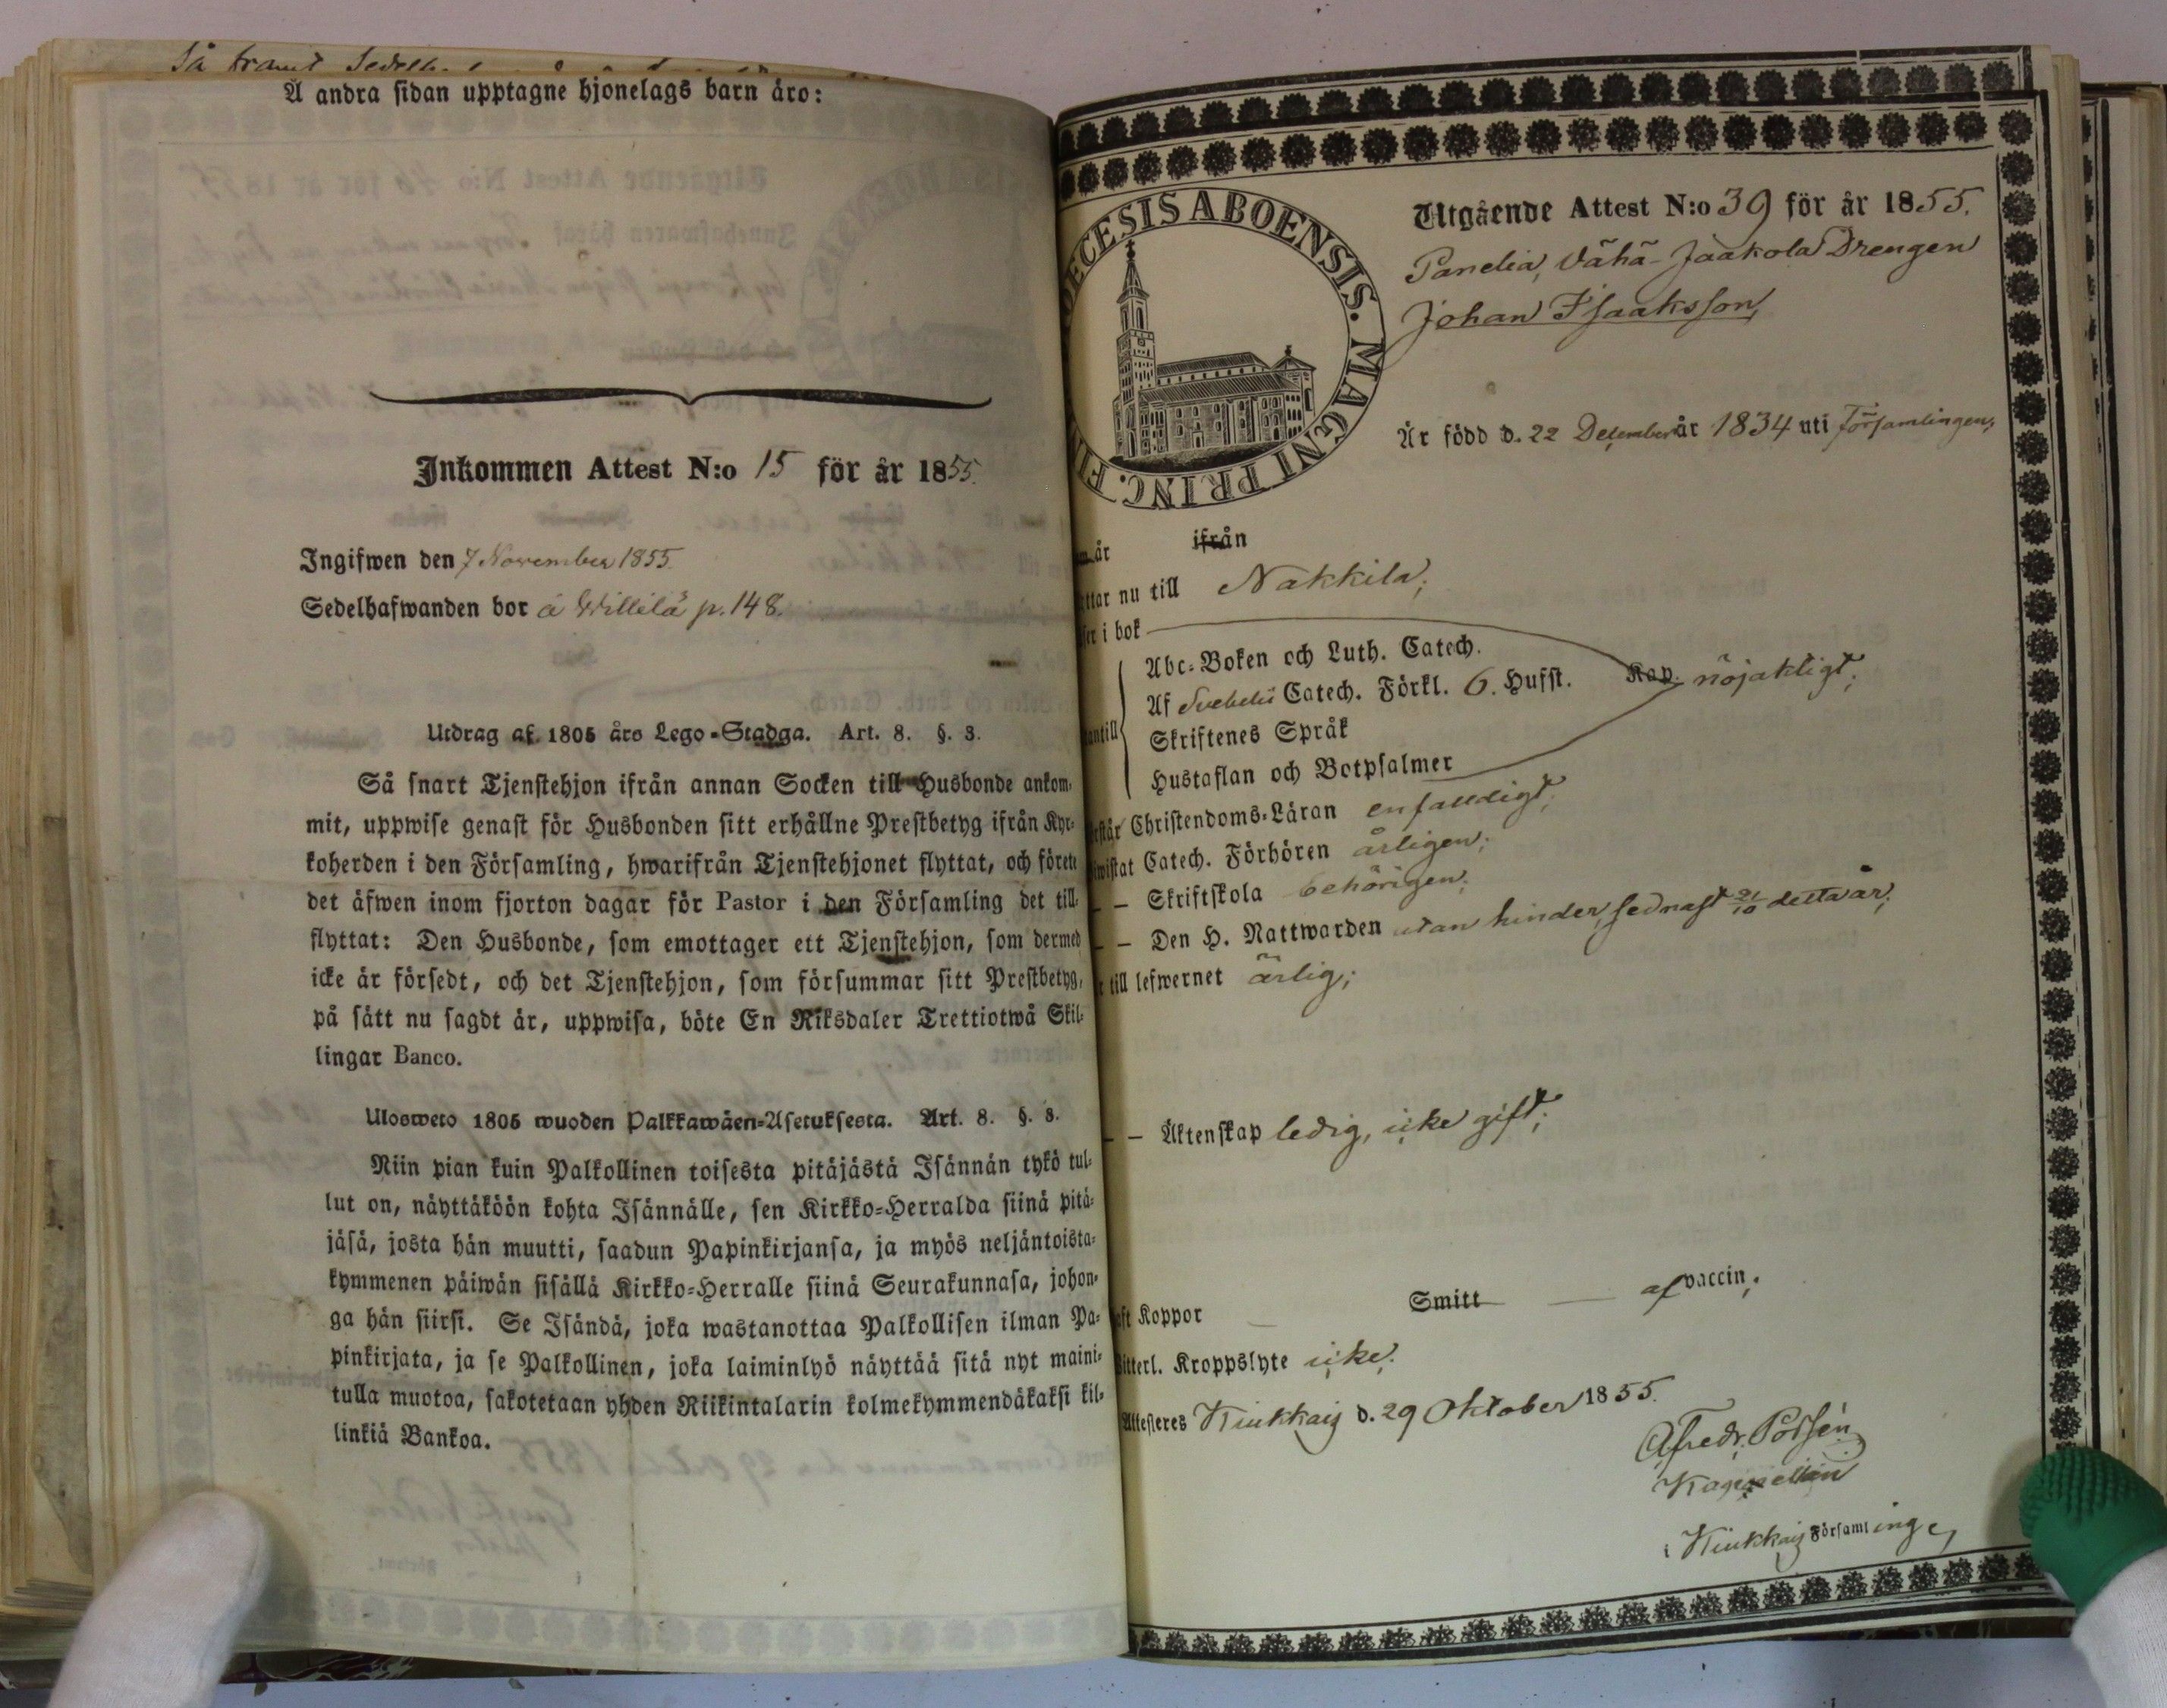 Så framt Sedelh
Å andra sidan upptagne hjonelags barn äro:
Inkommen Attest N:o 15 för år 1855.
Ingifwen den 7 November 1855.
Sedelhafwanden bor å Willilä p. 148.
Utdrag af 1805 års Lego-Stadga. Art. 8. §. 3.
Så snart Tjenstehjon ifrån annan Socken till Husbonde ankom-
mit, uppwise genast för Husbonden sitt erhållne Prestbetyg ifrån Kyr-
koherden i den Församling, hwarifrån Tjenstehjonet flyttat, och förete
det äfwen inom fjorton dagar för Pastor i den Församling det till-
flyttat: Den Husbonde, som emottager ett Tjenstehjon, som dermed
icke är försedt, och det Tjenstehjon, som försummar sitt Prestbetyg,
på sätt nu sagdt är, uppwisa, böte En Riksdaler Trettiotwå Skil-
lingar Banco.
Ulosweto 1805 wuoden Palkkawäen-Asetuksesta. Art. 8. §. 3.
Niin pian kuin Palkollinen toisesta pitäjästä Isännän tykö tul-
lut on, näyttäköön kohta Isännälle, sen Kirkko-Herralda siinä pitä-
jäsä, josta hän muutti, saadun Papinkirjansa, ja myös neljäntoista-
kymmenen päiwän sisällä Kirkko-Herralle siinä Seurakunnasa, johon-
ga hän siirsi. Se Isändä, joka wastanottaa Palkollisen ilman Pa-
pinkirjata, ja se Palkollinen, joka laiminlyö näyttää sitä nyt maini-
tulla muotoa, sakotetaan yhden Riikintalarin kolmekymmendäkaksi kil-
linkiä Bankoa.
DIŒCESIS ABOENSIS. MAGNI PRINC. FI
Utgående Attest N:o 39 för år 1855.
Panelia, Vähä-Jaakola Drengen
Johan Isaaksson,
Är född d. 22 December år 1834 uti Församlingen;
år ifrån
ttar nu till Nakkila;
ser i bok
Abc-Boken och Luth. Catech.
Af Svebelii Catech. Förkl. 6. Hufst. Kap. nöjaktigt;
antill Skriftenes Språk
Hustaflan och Botpsalmer
rstår Christendoms-Läran enfalldigt;
iwistat Catech. Förhören årligen;
— — Skriftskola behörigen;
— — Den H. Nattwarden utan hinder, sednast 21/10 detta år;
till lefwernet ärlig;
— — Äktenskap ledig, icke gift;
aft Koppor — Smitt — af vaccin;
itterl. Kroppslyte icke.
Attesteres Kiukkais d. 29 Oktober 1855.
A Fredr. Polsén
Kappellan
i Kiukkais Församlinge,